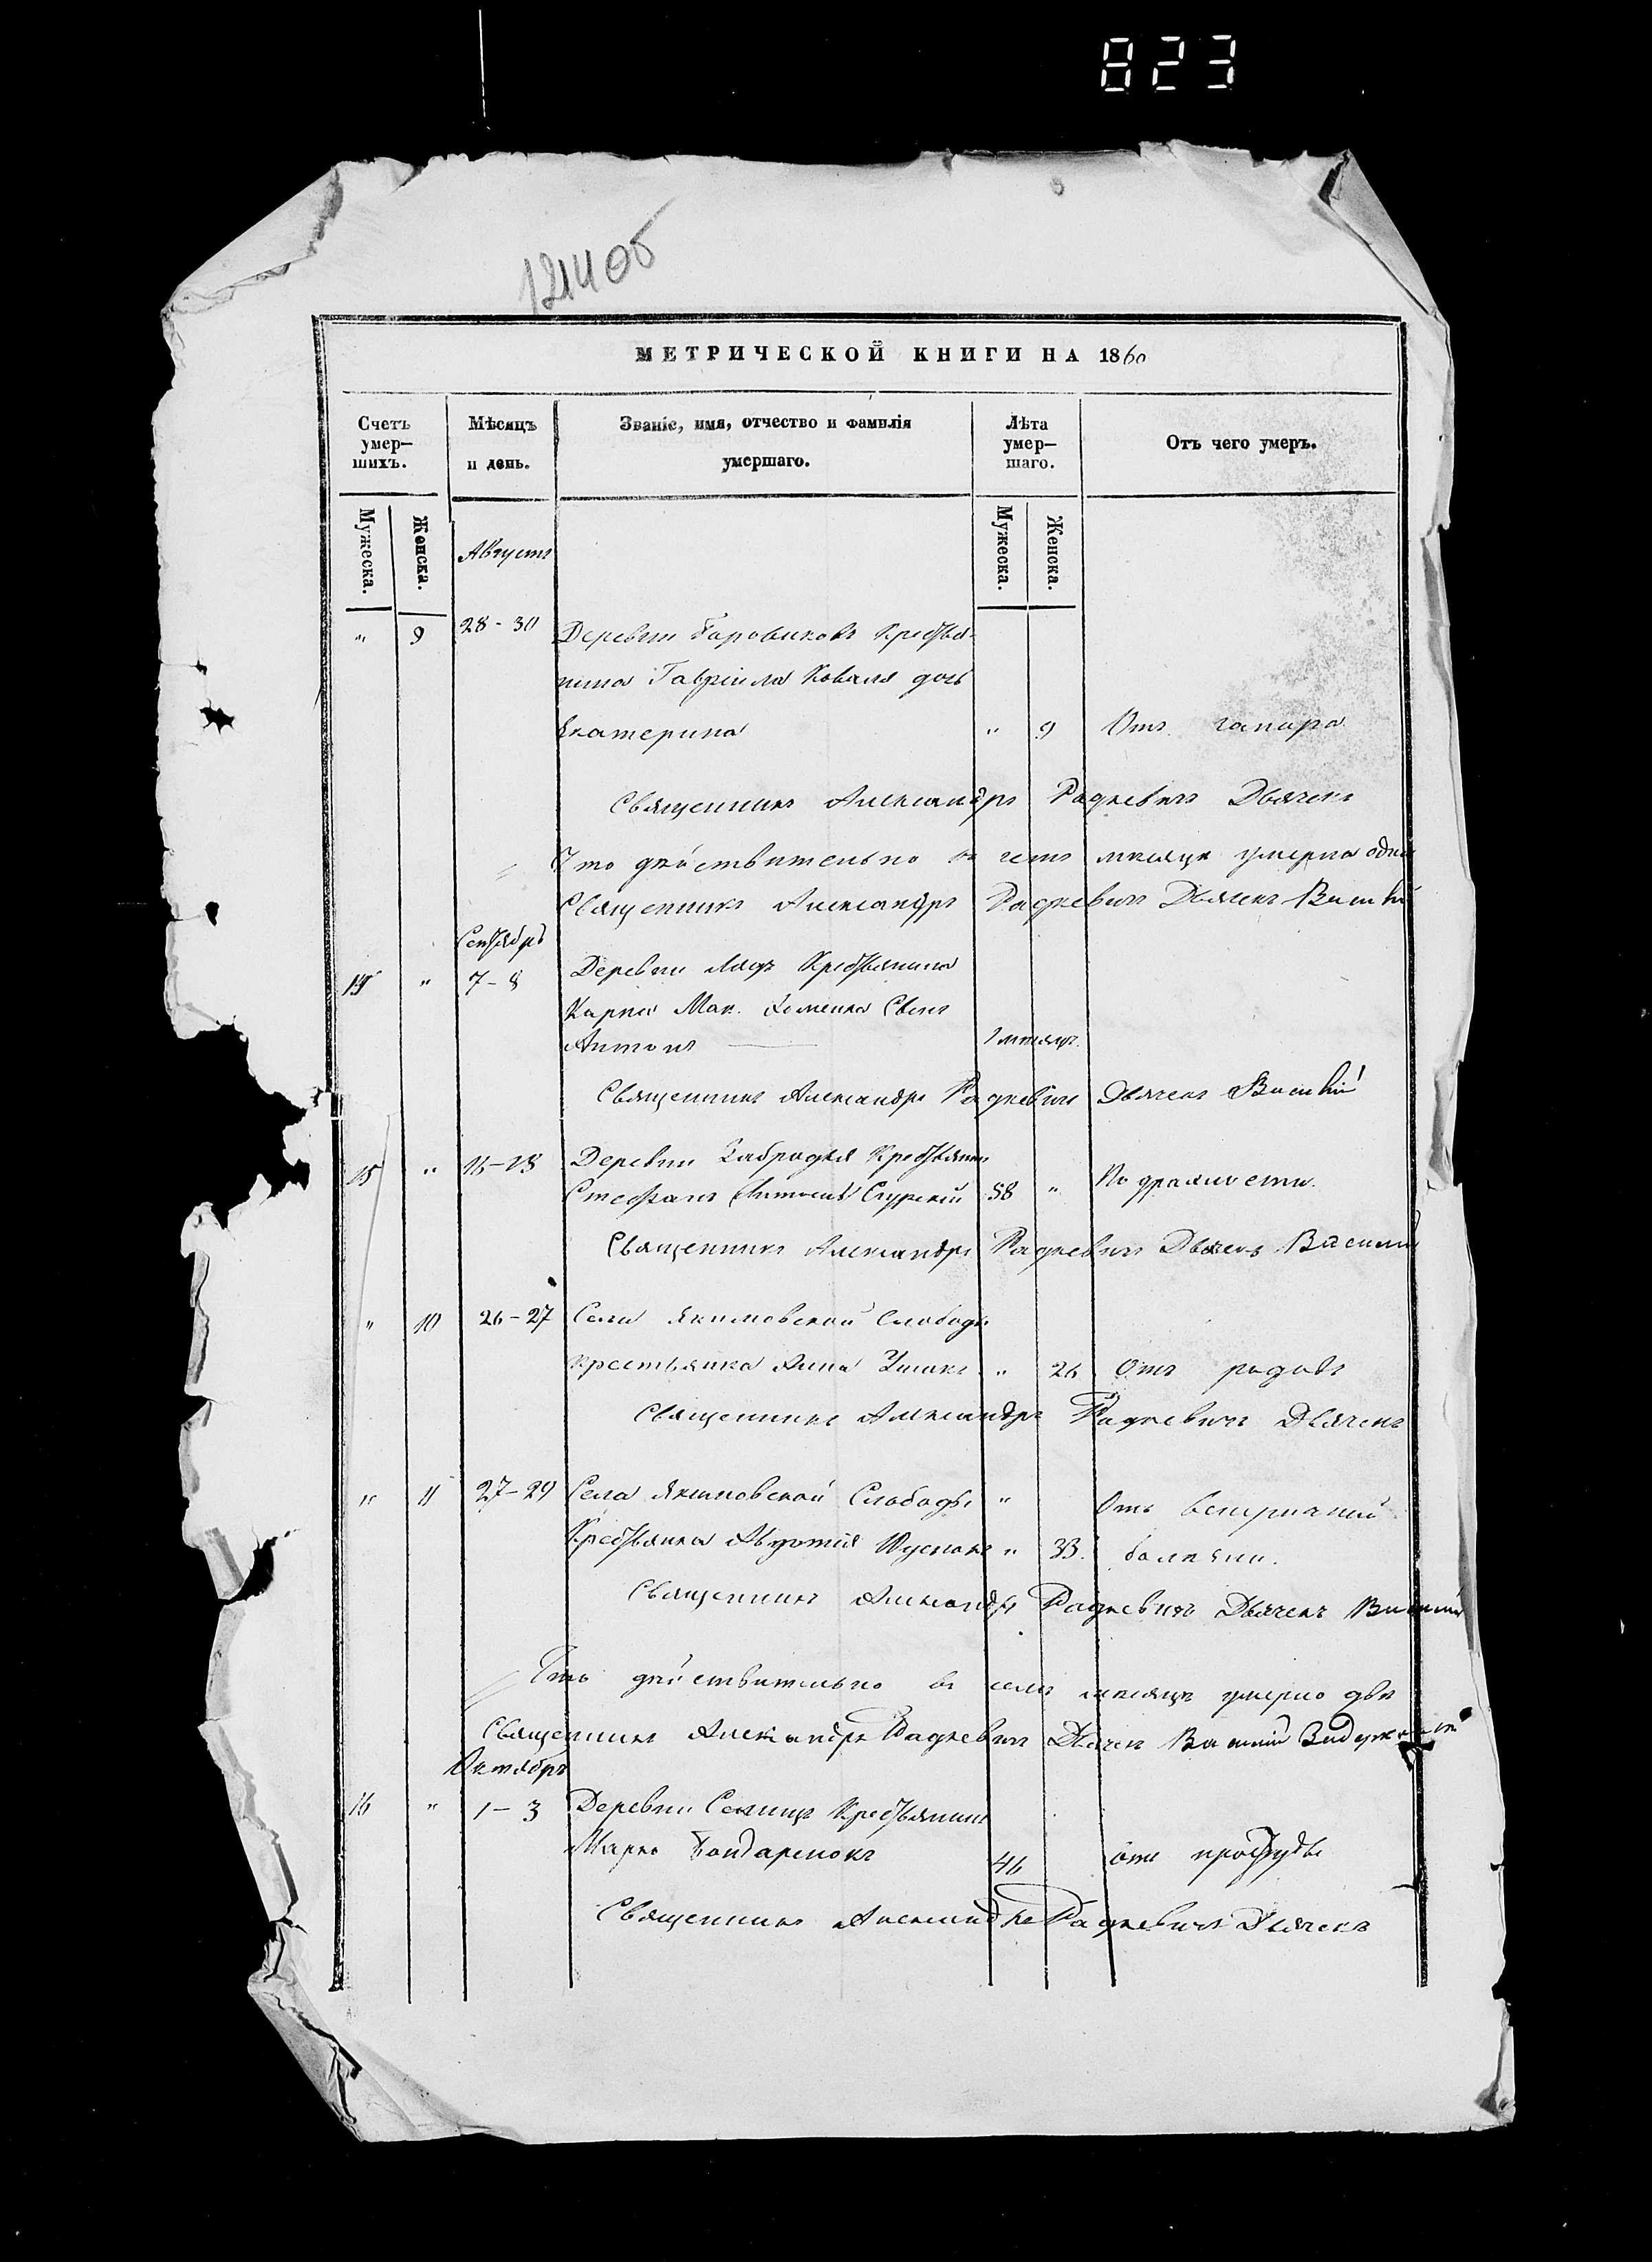 823
МЕТРИЧЕСКОЙ КНИГИ НА 1860
Счетъ умер-шихъ.
Мѣсяцъ и день.
Званіе, имя, отчество и фамилія умершаго.
Лѣта умер-шаго.
Отъ чего умеръ.
Мужеска.
Женска.
Мужеска.
Женска.
Августъ
" 9 28-30 Деревни Крестья-
нина Гавріила Коваля дочь
Екатерина " 9 Отъ
Священникъ Александръ Радкевичъ Дьячекъ
Что дѣйствительно въ семъ мѣсяцѣ умерла одна
Священникъ Александръ Радкевичъ Дьячекъ
Сентябрь
" 7-8 Деревни Лядъ Крестьянина
Карпа Сынъ
Антонъ 1 мѣсяцъ
Священникъ Александръ Радкевичъ Дьячекъ
15 " 16-18 Деревни Забродья Крестьянинъ
Стефанъ 58 " По дряхлости.
Священникъ Александръ Радкевичъ Дьячекъ Василій
" 10 26-27 Села Якимовской Слободы
крестьянка Анна " 26 Отъ родовъ
Священникъ Александръ Радкевичъ Дьячекъ
" 11 27-29 Села Якимовской Слободы " Отъ
Крестьянка Авдотія " 33. болезни.
Священникъ Александръ Радкевичъ Дьячекъ Василій
Что дѣйствительно въ семъ мѣсяцѣ умерло двѣ
Священникъ Александръ Радкевичъ Дьячекъ Василій
Октябрь
16 " 1-3 Деревни Крестьянинъ
Марко Бондаренокъ 46 отъ простуды
Священникъ Александръ Радкевичъ Дьячекъ